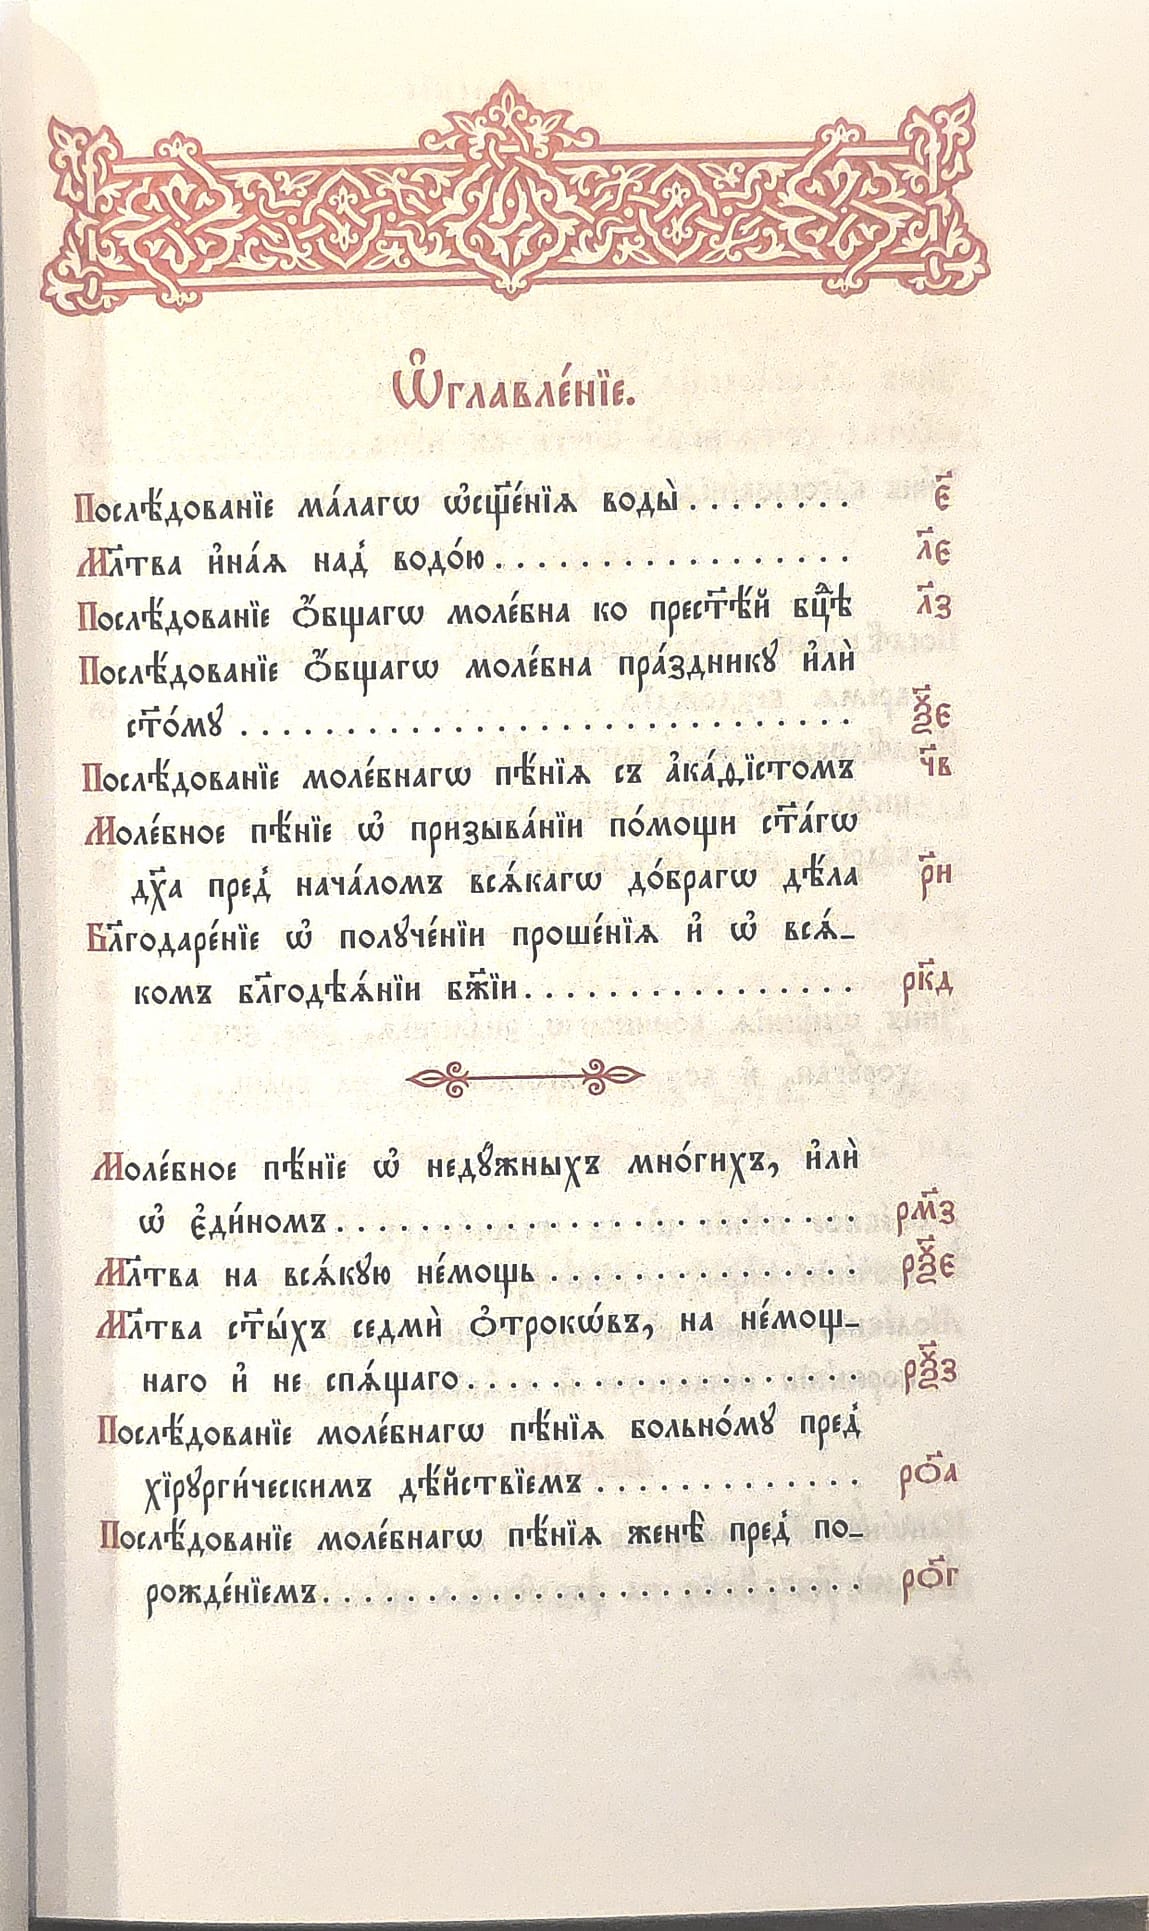 Ѡ҆главле́нїе.
Послѣ́дованїе ма́лагѡ ѡ҆сщ҃е́нїѧ воды̀ . . . . . . . . є҃
Мл҃тва и҆на́ѧ над̾ водо́ю . . . . . . . . . . . . . . . . . л҃є
Послѣ́дованїе ѻ҆́бщагѡ моле́бна ко прест҃ѣ́й бцⷣѣ л҃з
Послѣ́дованїе ѻ҆́бщагѡ моле́бна пра́здникꙋ и҆лѝ
ст҃о́мꙋ . . . . . . . . . . . . . . . . . . . . . . . . . . . . . ѯ҃є
Послѣ́дованїе моле́бнагѡ пѣ́нїѧ съ а҆ка́ѳїстомъ ч҃в
Моле́бное пѣ́нїе ѡ҆ призыва́нїи по́мощи ст҃а́гѡ
дх҃а пред̾ нача́ломъ всѧ́кагѡ до́брагѡ дѣ́ла р҃н
Бл҃годаре́нїе ѡ҆ полꙋче́нїи проше́нїѧ и҆ ѡ҆ всѧ́_
комъ бл҃годѣѧ́нїи бж҃їи . . . . . . . . . . . . . . . . рк҃д
Моле́бное пѣ́нїе ѡ҆ недꙋ́жныхъ мно́гихъ, и҆лѝ
ѡ҆ є҆ди́номъ . . . . . . . . . . . . . . . . . . . . . . . . . рм҃з
Мл҃тва на всѧ́кꙋю не́мощь . . . . . . . . . . . . . . . рѯ҃є
Мл҃тва ст҃ы́хъ седмѝ ѻ҆трокѡ́въ, на не́мощ_
наго и҆ не спѧ́щаго . . . . . . . . . . . . . . . . . . . рѯ҃з
Послѣ́дованїе моле́бнагѡ пѣ́нїѧ больно́мꙋ пред̾
хїрꙋрги́ческимъ дѣ́йствїемъ . . . . . . . . . . . . . рѻ҃а
Послѣ́дованїе моле́бнагѡ пѣ́нїѧ женѣ̀ пред̾ по_
рожде́нїемъ . . . . . . . . . . . . . . . . . . . . . . . . . . рѻ҃г